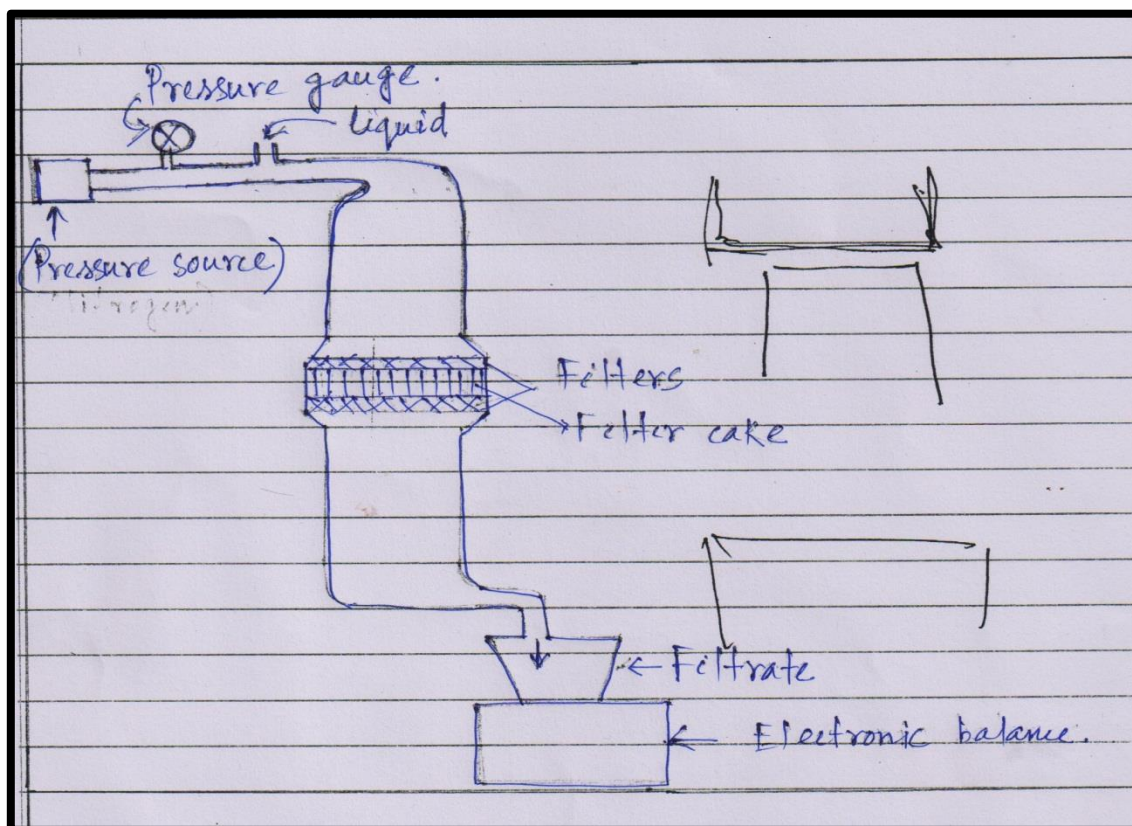 Pressure gauge.
liquid
(Pressure source)
Nitrogen
Filters
Felter cake
Filtrate
Electronic balance.